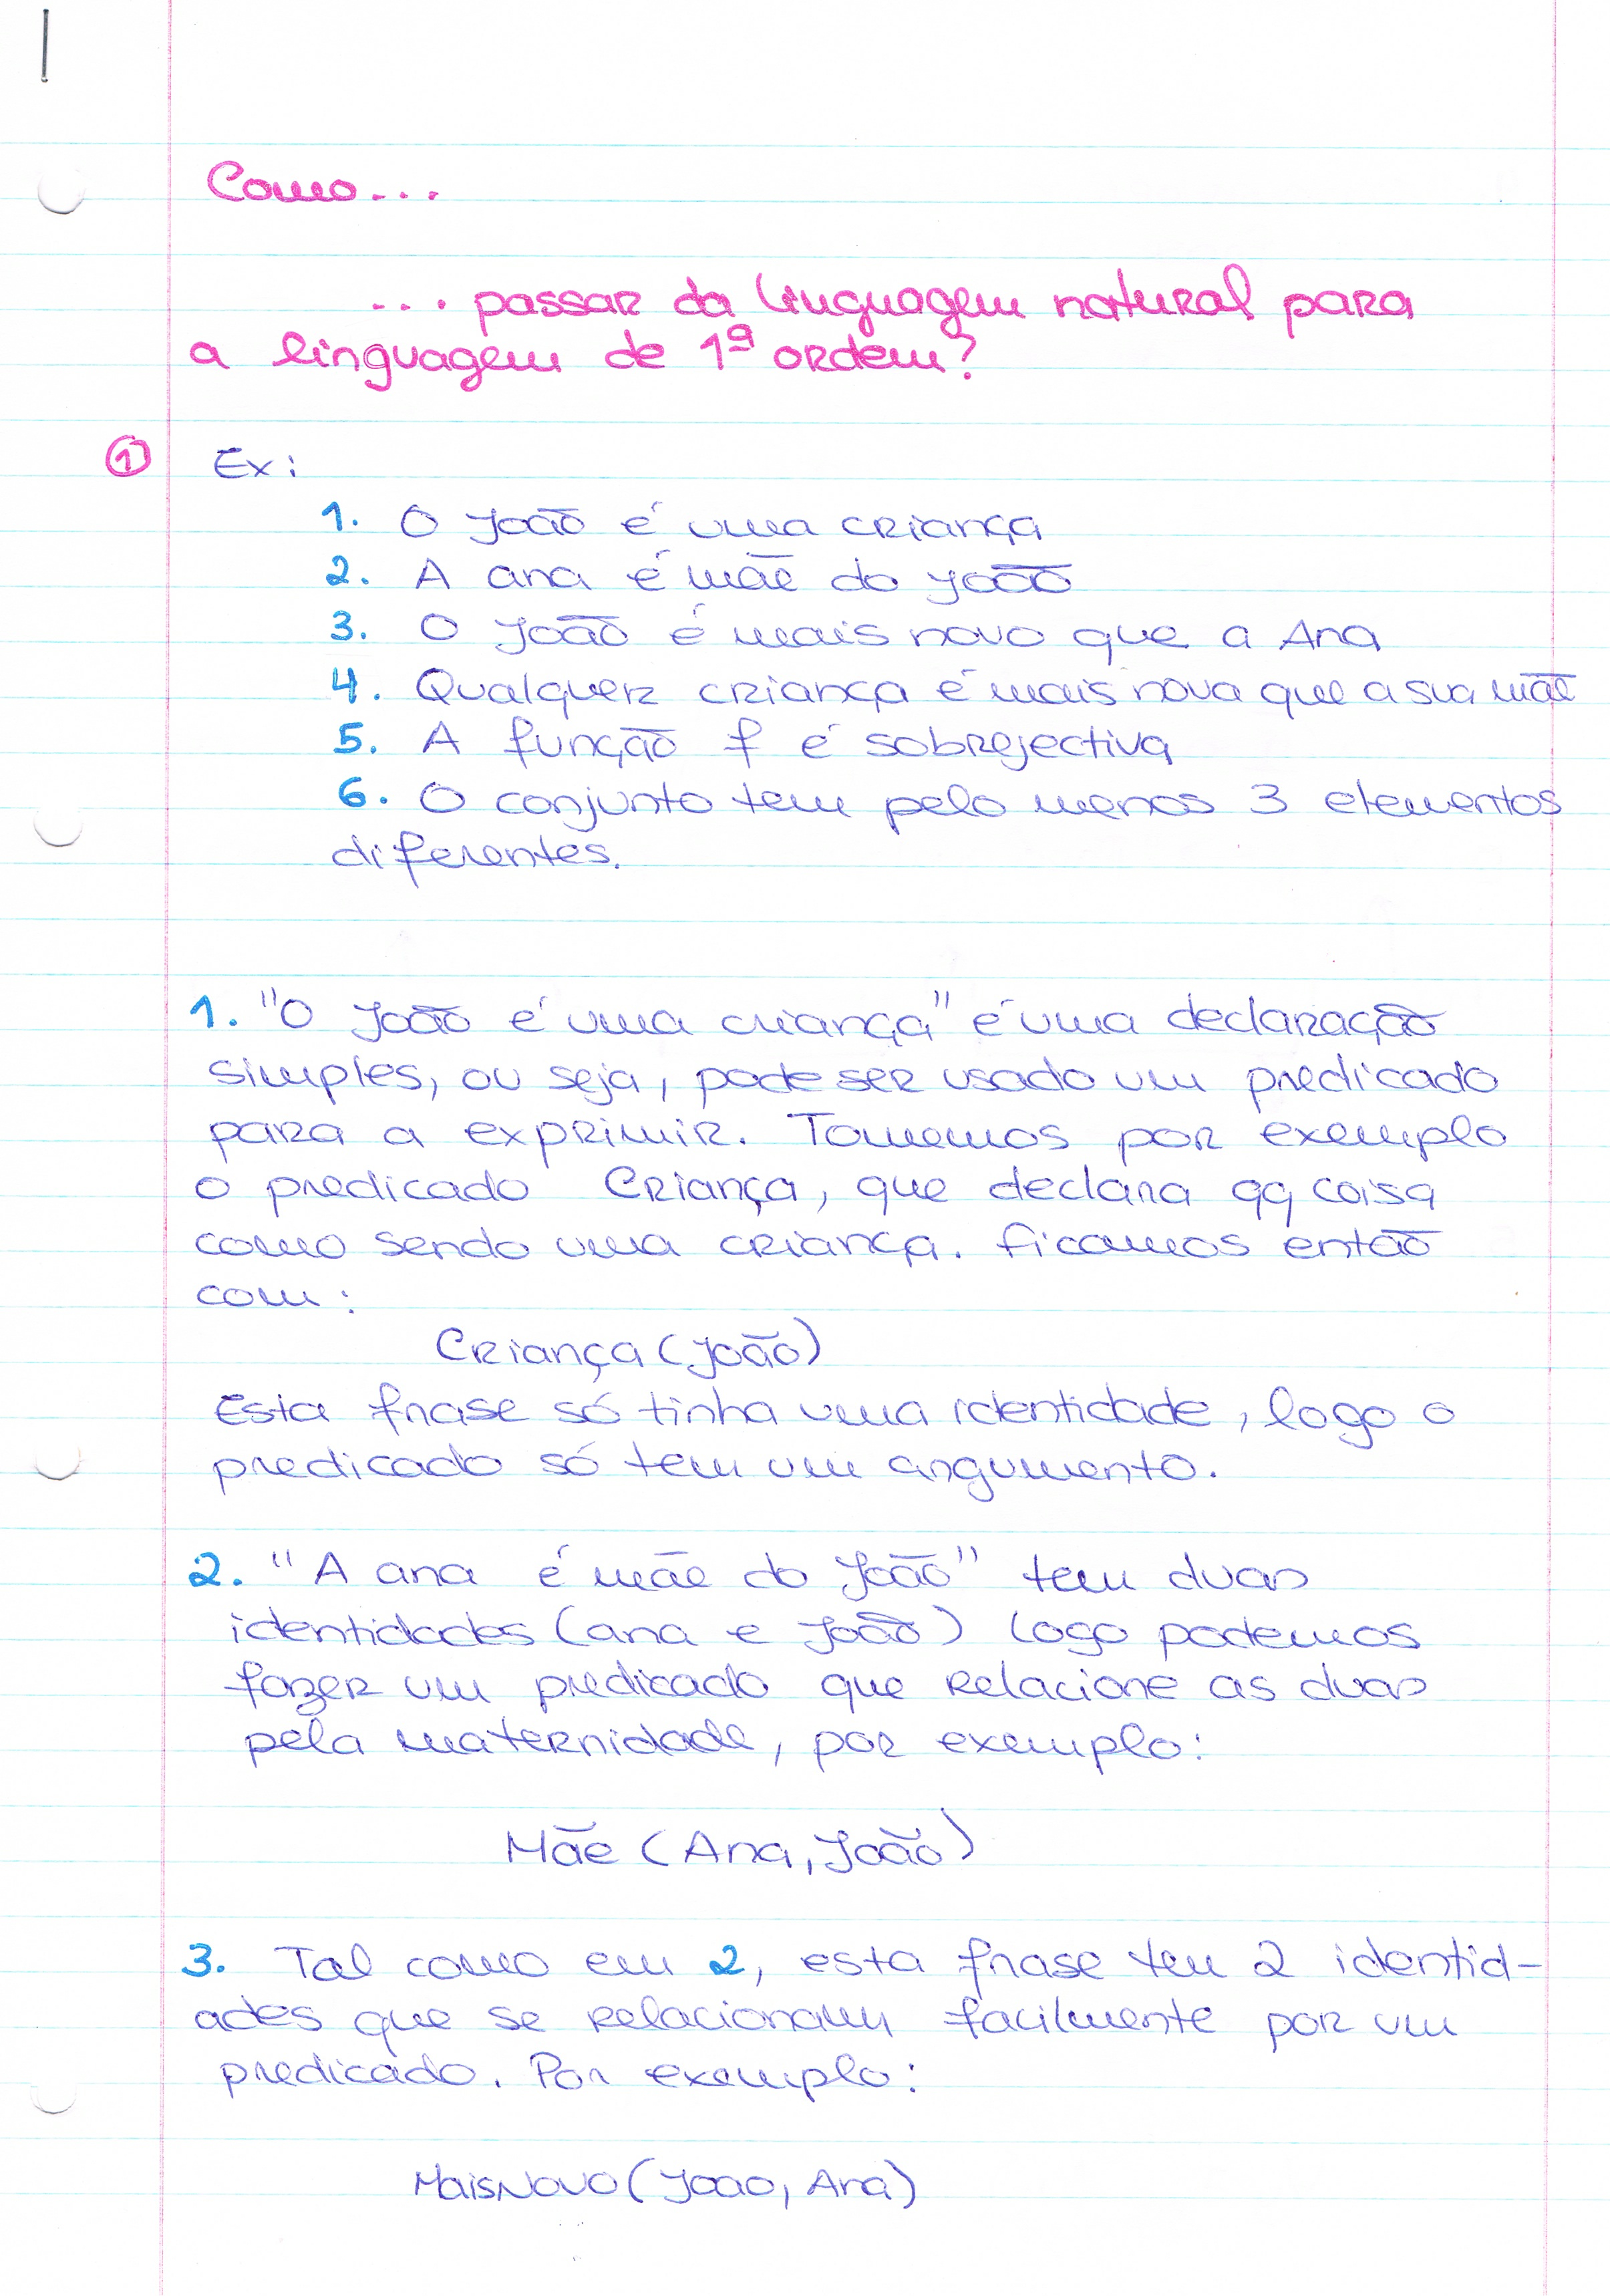 Como...
... passar da linguagem natural para
a linguagem de 1ª ordem?
① Ex:
1. O João é uma criança
2. A ana é mãe do João
3. O João é mais novo que a Ana
4. Qualquer criança é mais nova que a sua mãe
5. A função f é sobrejectiva
6. O conjunto tem pelo menos 3 elementos
diferentes.
1. "O João é uma criança" é uma declaração
simples, ou seja, pode ser usado um predicado
para a exprimir. Tomemos por exemplo
o predicado Criança, que declara qq coisa
como sendo uma criança. ficamos então
com:
Criança (João)
Esta frase só tinha uma identidade, logo o
predicado só tem um argumento.
2. "A ana é mãe do João" tem duas
identidades (ana e João) logo podemos
fazer um predicado que relacione as duas
pela maternidade, por exemplo:
Mãe (Ana, João)
3. Tal como em 2, esta frase tem 2 identid-
ades que se relacionam facilmente por um
predicado. Por exemplo:
MaisNovo (Joao, Ana)